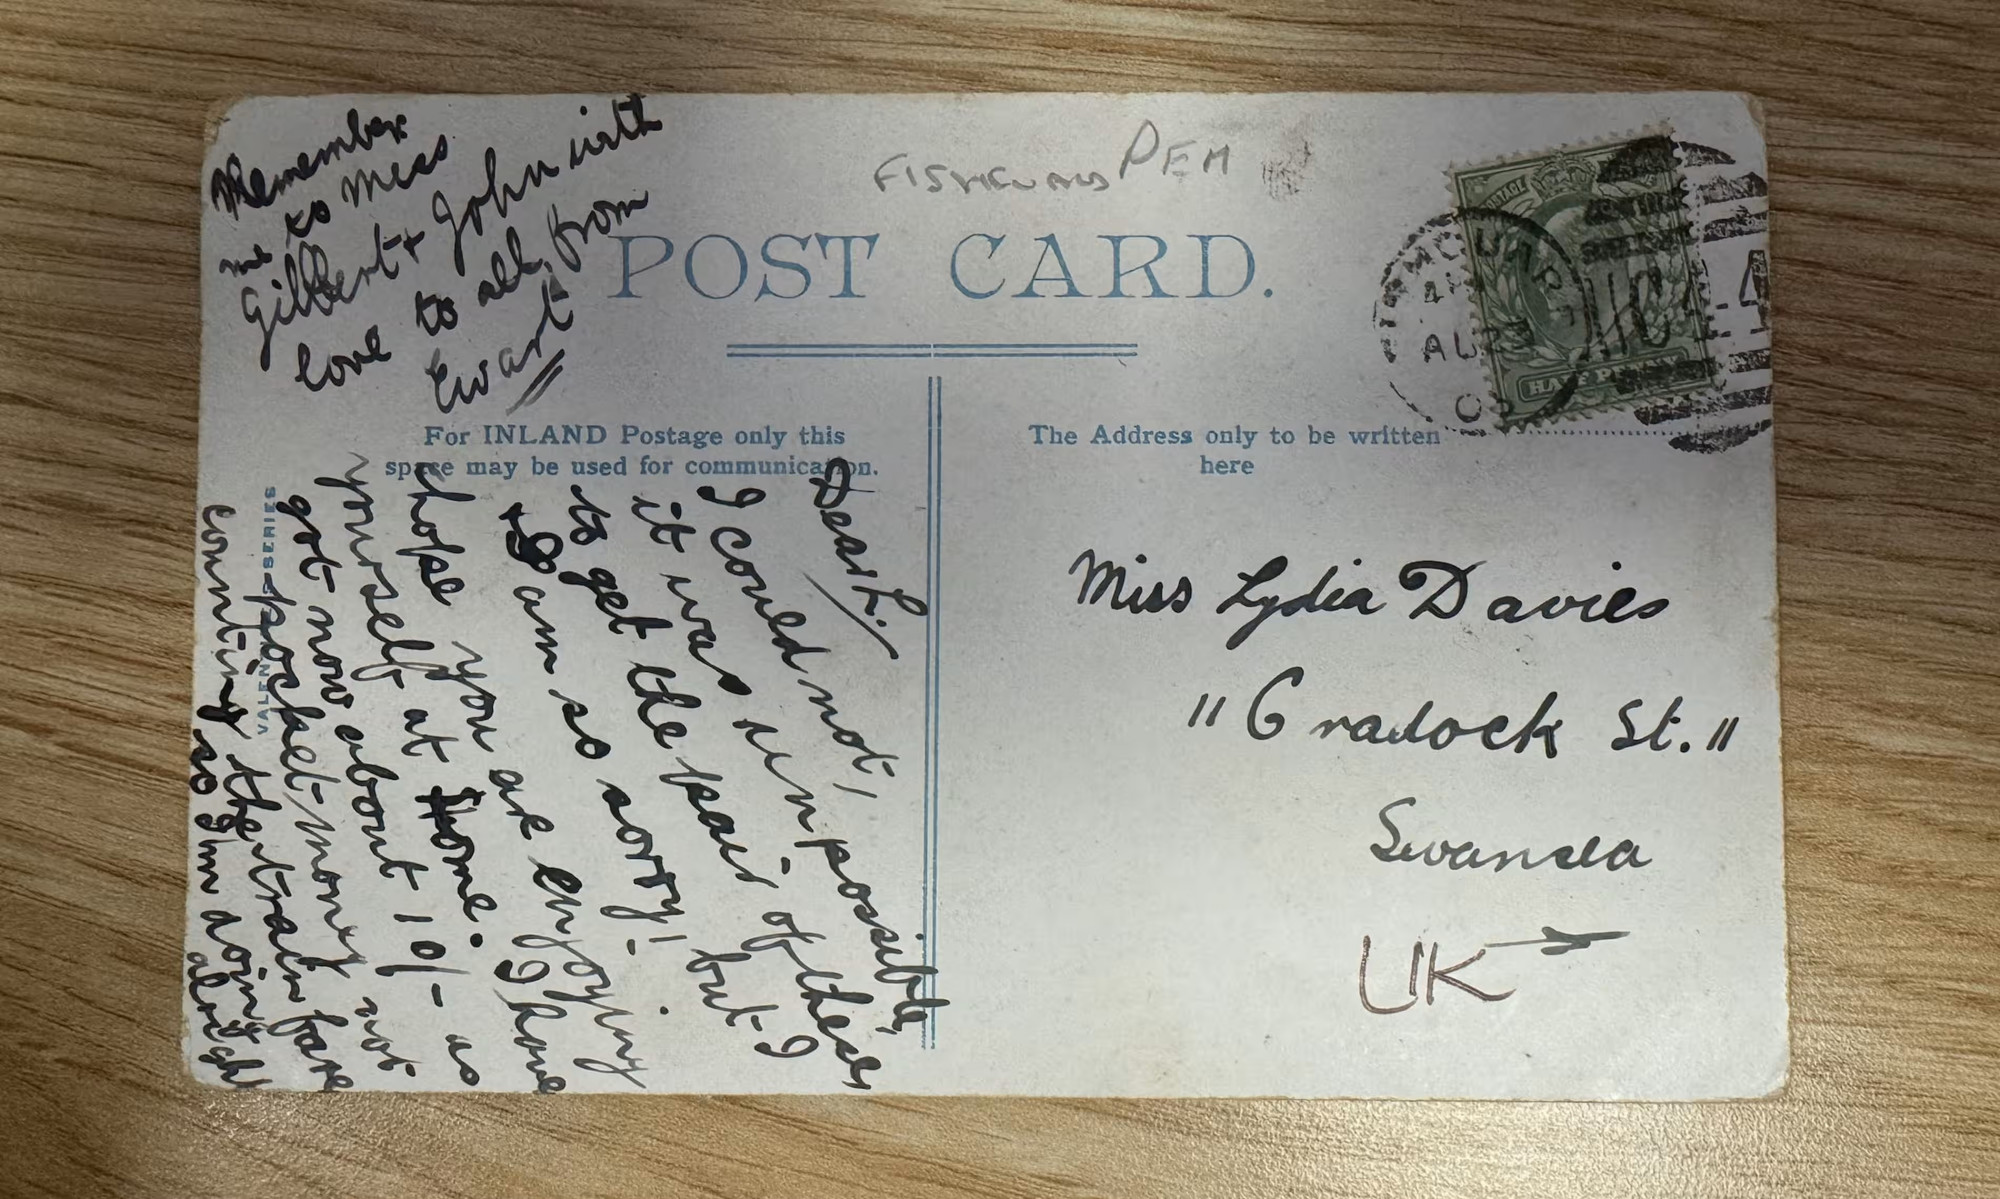 Remember
me to Miss
Gilbert + John with
love to all, from
Ewart
FISHGUARD PEM
POST CARD.
For INLAND Postage only this
space may be used for communication.
The Address only to be written
here
Dear L.,
I could not,
it was impossible,
to get the pair of these,
I am so sorry! but I
hope you are enjoying
yourself at home. I have
got now about 10/- as
pocket-money not
counting the train fare
so I'm doing
alright
VALENTINES SERIES
Miss Lydia Davies
"Cradock St."
Swansea
UK
POSTAGE
HALF PENNY
AU